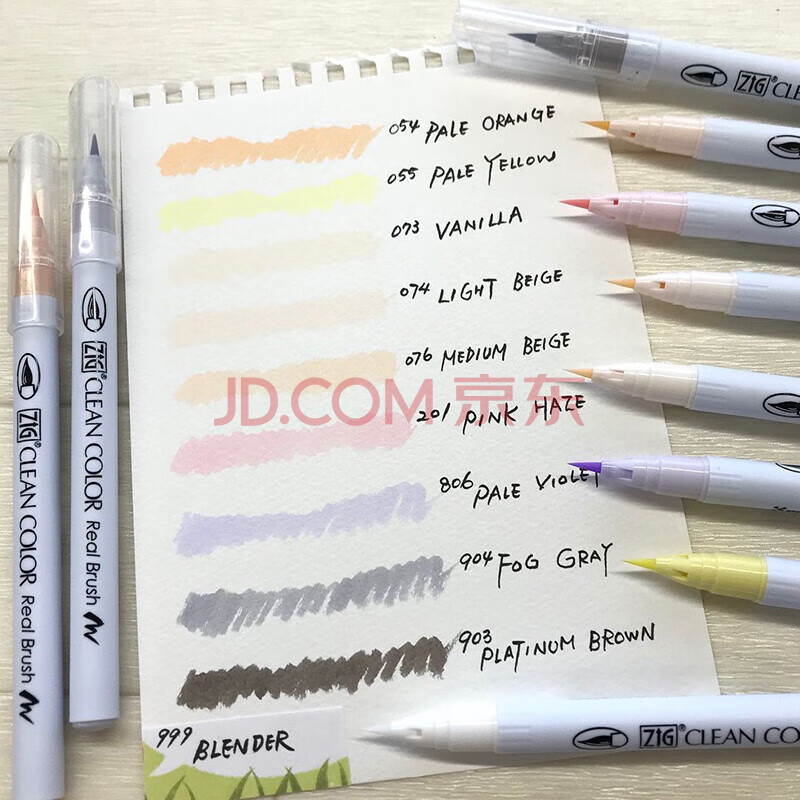 ZIG® CLEAN
054 PALE ORANGE
055 PALE YELLOW
073 VANILLA
074 LIGHT BEIGE
076 MEDIUM BEIGE
JD.COM 京东
201 PINK HAZE
806 PALE VIOLET
904 FOG GRAY
903 PLATINUM BROWN
999 BLENDER
ZIG® CLEAN CO
ZIG® CLEAN COLOR Real Brush
ZIG® CLEAN COLOR Real Brush